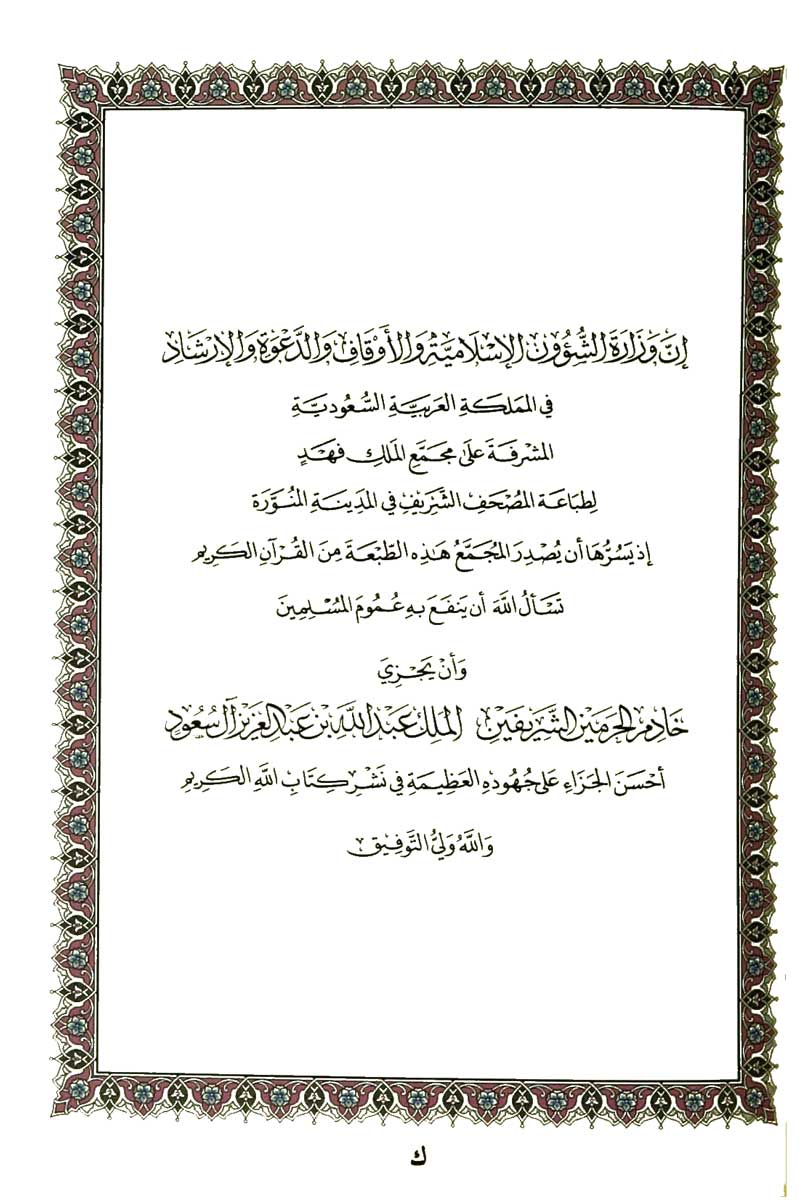 إِنَّ وَزَارَةَ الشُّؤُونِ الإِسْلَامِيَّةِ وَالأَوْقَافِ وَالدَّعْوَةِ وَالإِرْشَادِ
فِي المَمْلَكَةِ العَرَبِيَّةِ السُّعُودِيَّةِ
المُشْرِفَةَ عَلَى مُجَمَّعِ المَلِكِ فَهْدٍ
لِطِبَاعَةِ المُصْحَفِ الشَّرِيفِ فِي المَدِينَةِ المُنَوَّرَةِ
إِذْ يَسُرُّهَا أَن يُصْدِرَ المُجَمَّعُ هَذِهِ الطَّبْعَةَ مِنَ القُرْآنِ الكَرِيمِ
تَسْأَلُ اللَّهَ أَن يَنْفَعَ بِهِ عُمُومَ المُسْلِمِينَ
وَأَنْ يَجْزِيَ
خَادِمَ الحَرَمَيْنِ الشَّرِيفَيْنِ المَلِكَ عَبْدَ اللَّهِ بْنَ عَبْدِ العَزِيزِ آلَ سُعُودٍ
أَحْسَنَ الجَزَاءِ عَلَى جُهُودِهِ العَظِيمَةِ فِي نَشْرِ كِتَابِ اللَّهِ الكَرِيمِ
وَاللَّهُ وَلِيُّ التَّوْفِيقِ
ك